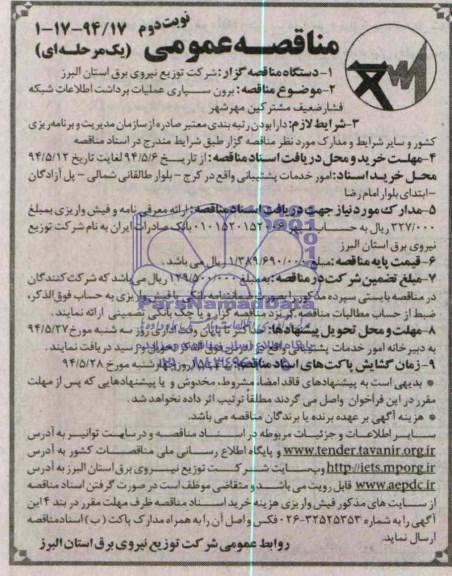 نوبت دوم
۱-۱۷-۹۴/۱۷
مناقصه عمومی (یک مرحله‌ای)
۱- دستگاه مناقصه گزار: شرکت توزیع نیروی برق استان البرز
۲- موضوع مناقصه: برون سپاری عملیات برداشت اطلاعات شبکه
فشار ضعیف مشترکین مهرشهر
۳- شرایط لازم: دارا بودن رتبه بندی معتبر صادره از سازمان مدیریت و برنامه ریزی
کشور و سایر شرایط و مدارک مورد نظر مناقصه گزار طبق شرایط مندرج در اسناد مناقصه
۴- مهلت خرید و محل دریافت اسناد مناقصه: از تاریخ ۹۴/۵/۶ لغایت تاریخ ۹۴/۵/۱۲
محل خرید اسناد: امور خدمات پشتیبانی واقع در کرج - بلوار طالقانی شمالی - پل آزادگان
- ابتدای بلوار امام رضا
۵- مدارک مورد نیاز جهت دریافت اسناد مناقصه: ارائه معرفی نامه و فیش واریزی بمبلغ
۳۲۷/۰۰۰ ریال به حساب بانک صادرات ایران به نام شرکت توزیع
نیروی برق استان البرز
۶- قیمت پایه مناقصه: مبلغ ۱/۳۸۹/۶۹۰/۰۰۰ ریال می باشد.
۷- مبلغ تضمین شرکت در مناقصه: به مبلغ ریال می باشد که شرکت کنندگان
در مناقصه بایستی سپرده مذکور را بصورت ضمانتنامه بانکی یا فیش واریزی به حساب فوق الذکر،
ضبط از حساب مطالبات مناقصه گر نزد مناقصه گزار و یا چک بانکی تضمینی ارائه نمایند.
۸- مهلت و محل تحویل پیشنهادها: حداکثر تا پایان وقت اداری روز سه شنبه مورخ ۹۴/۵/۲۷
به دبیرخانه امور خدمات پشتیبانی واقع در تحویل و رسید دریافت نمایند.
۹- زمان گشایش پاکت های اسناد مناقصه: روز چهارشنبه مورخ ۹۴/۵/۲۸
● بدیهی است به پیشنهادهای فاقد امضا، مشروط، مخدوش و یا پیشنهادهایی که پس از مهلت
مقرر در این فراخوان واصل می گردند مطلقاً ترتیب اثر داده نخواهد شد.
● هزینه آگهی بر عهده برنده یا برندگان مناقصه می باشد.
سایر اطلاعات و جزئیات مربوطه در اسناد مناقصه و در سایت توانیر به آدرس
www.tender.tavanir.org.ir و پایگاه اطلاع رسانی ملی مناقصات کشور به آدرس
http://iets.mporg.ir وب سایت شرکت توزیع نیروی برق استان البرز به آدرس
www.aepdc.ir قابل رویت می باشد و متقاضی موظف است در صورت گرفتن اسناد مناقصه
از سایت های مذکور فیش واریزی هزینه خرید اسناد مناقصه ظرف مهلت مقرر در بند ۴ این
آگهی را به شماره ۳۲۵۲۵۳۵۳-۰۲۶ فکس و اصل آن را به همراه مدارک پاکت (ب) اسناد مناقصه
ارسال نماید.
روابط عمومی شرکت توزیع نیروی برق استان البرز
ParsNamadData